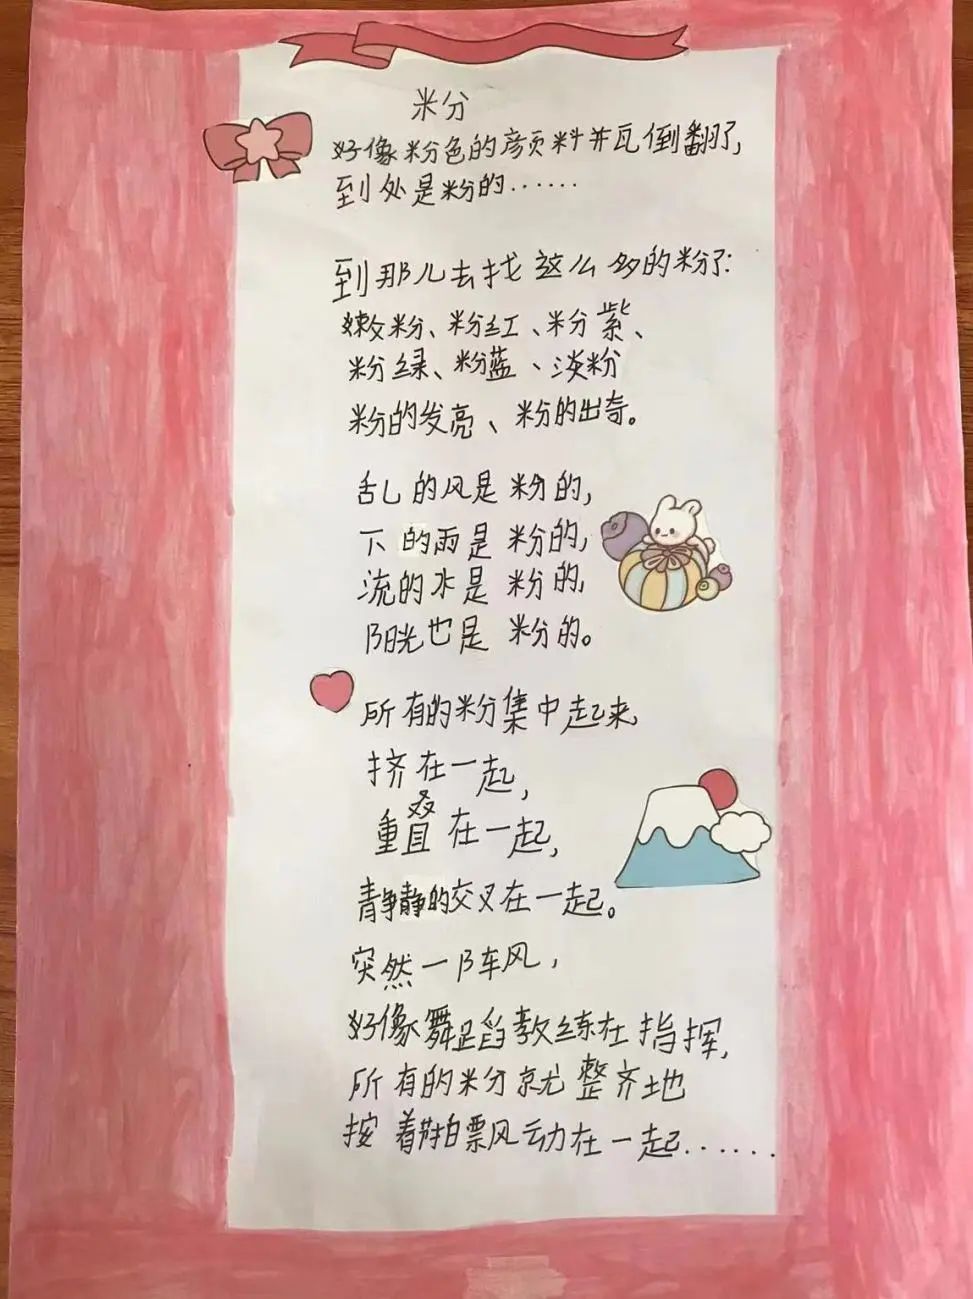 粉
好像粉色的颜料瓶倒翻了,
到处是粉的……
到那儿去找这么多的粉了:
嫩粉、粉红、粉紫、
粉绿、粉蓝、淡粉
粉的发亮、粉的出奇。
刮的风是粉的,
下的雨是粉的,
流的水是粉的,
阳光也是粉的。
所有的粉集中起来
挤在一起,
重叠在一起,
静静的交叉在一起。
突然一阵风,
好像舞蹈教练在指挥,
所有的粉就整齐地
按着节拍飘动在一起……